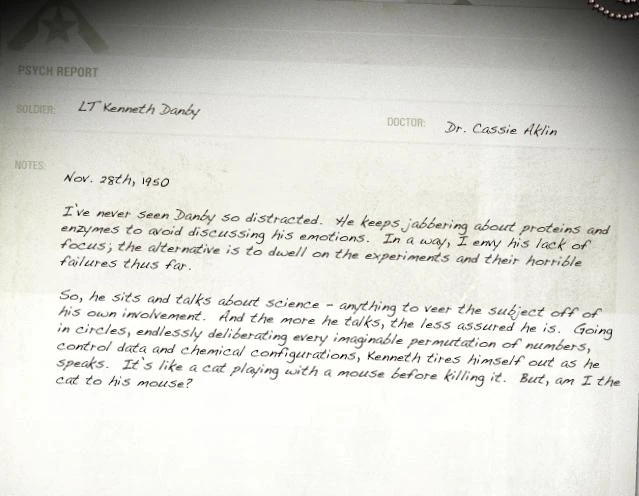 PSYCH REPORT
SOLDIER: LT Kenneth Danby
DOCTOR: Dr. Cassie Aklin
NOTES:
Nov. 28th, 1950
I've never seen Danby so distracted. He keeps jabbering about proteins and
enzymes to avoid discussing his emotions. In a way, I envy his lack of
focus; the alternative is to dwell on the experiments and their horrible
failures thus far.
So, he sits and talks about science - anything to veer the subject off of
his own involvement. And the more he talks, the less assured he is. Going
in circles, endlessly deliberating every imaginable permutation of numbers,
control data and chemical configurations, Kenneth tires himself out as he
speaks. It's like a cat playing with a mouse before killing it. But, am I the
cat to his mouse?